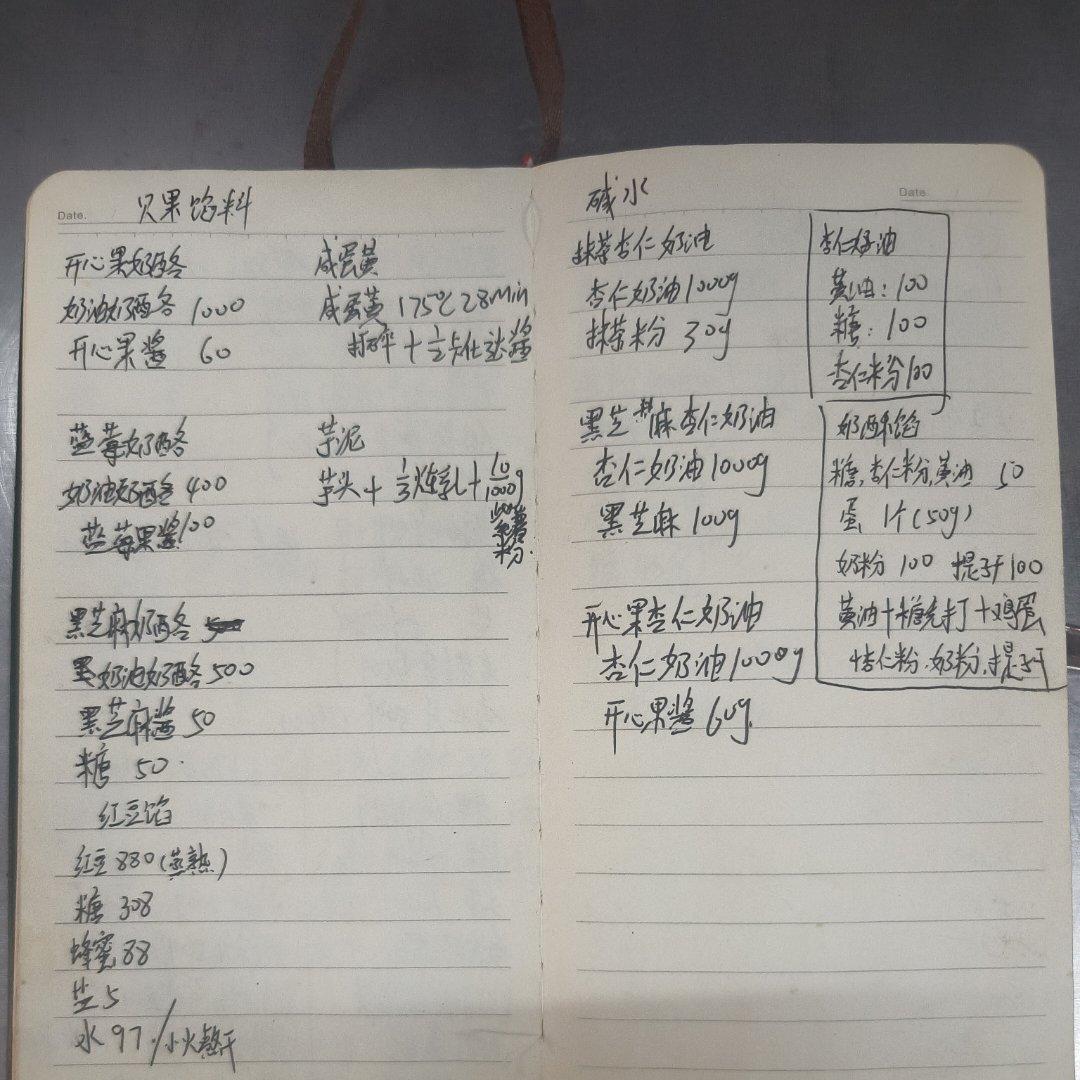 Date.
贝果馅料
开心果奶酪
奶油奶酪 1000
开心果酱 60
蓝莓奶酪
奶油奶酪 400
蓝莓果酱 100
黑芝麻奶酪
奶油奶酪 500
黑芝麻酱 50
糖 50
红豆馅
红豆 880 (蒸熟)
糖 308
蜂蜜 88
盐 5
水 97 / 小火熬干
咸蛋黄
咸蛋黄 175℃ 28min
打碎 + 1/2 卡仕达酱
芋泥
芋头 + 1/3 炼乳 + 10/1000g
紫薯粉
Date.
碱水
抹茶杏仁奶油
杏仁奶油 1000g
抹茶粉 30g
黑芝麻杏仁奶油
杏仁奶油 1000g
黑芝麻 100g
开心果杏仁奶油
杏仁奶油 1000g
开心果酱 60g
杏仁奶油
黄油: 100
糖: 100
杏仁粉 100
奶酥馅
糖, 杏仁粉, 黄油 50
蛋 1个 (50g)
奶粉 100 提子干 100
黄油 + 糖先打 + 鸡蛋
杏仁粉, 奶粉, 提子干